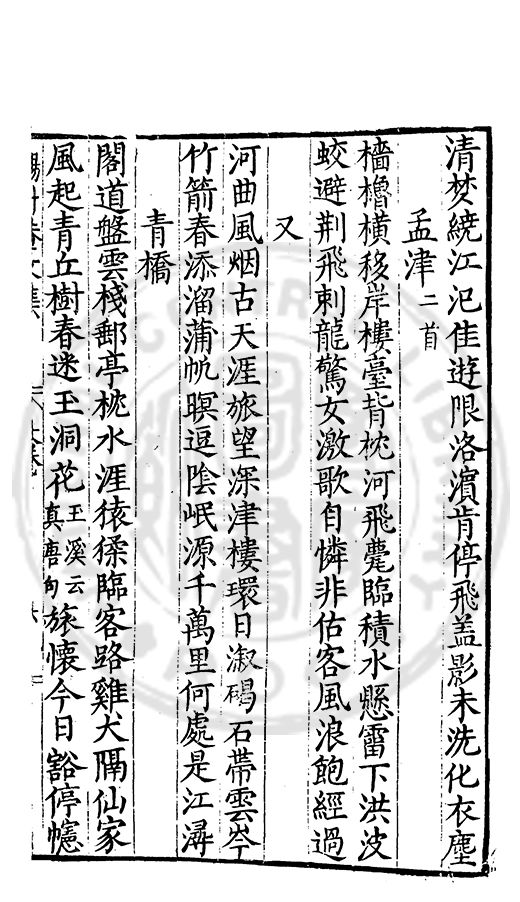 清梦繞江汜佳遊限洛濱肯停飛盖影未洗化衣塵
孟津二首
檣櫓橫移岸樓臺背枕河飛甍臨積水懸霤下洪波
蛟避荆飛刺龍驚女激歌自憐非估客風浪飽經過
又
河曲風烟古天涯旅望深津樓環日溆碣石帶雲岑
竹箭春添溜蒲帆暝逗陰岷源千萬里何處是江潯
青橋
閣道盤雲棧郵亭枕水涯猿猱臨客路雞犬隔仙家
風起青丘樹春迷玉洞花王溪云真唐句旅懷今日豁停幰